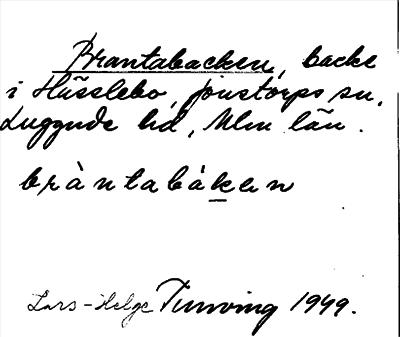 Brantabacken, backe
i Hässlebo, Jonstorps sn,
Luggude hd, Mlm län.
bràntabáken
Lars-Helge Tunving 1949.